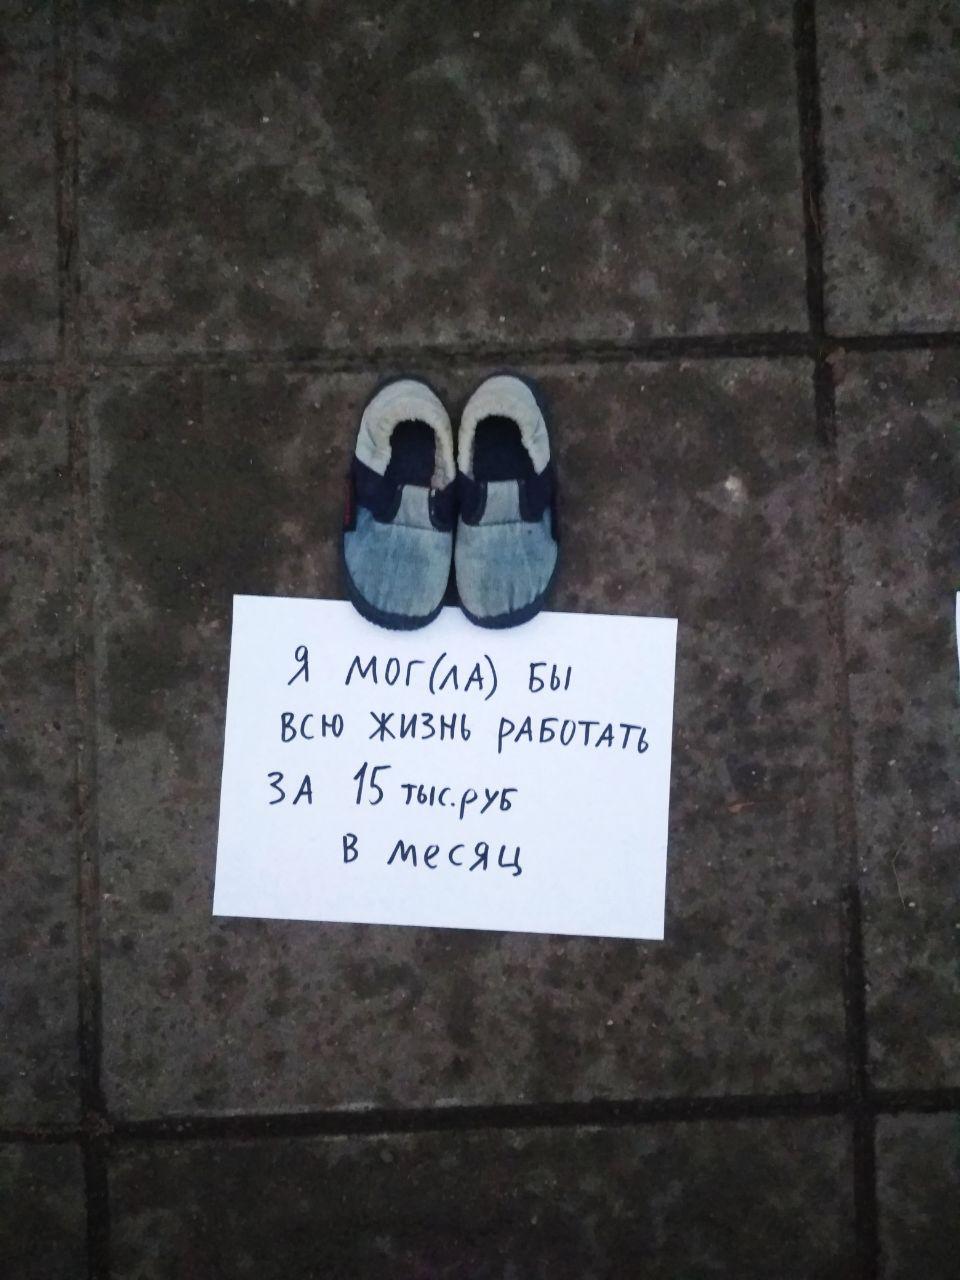 Я МОГ(ЛА) БЫ
ВСЮ ЖИЗНЬ РАБОТАТЬ
ЗА 15 тыс.руб
В месяц